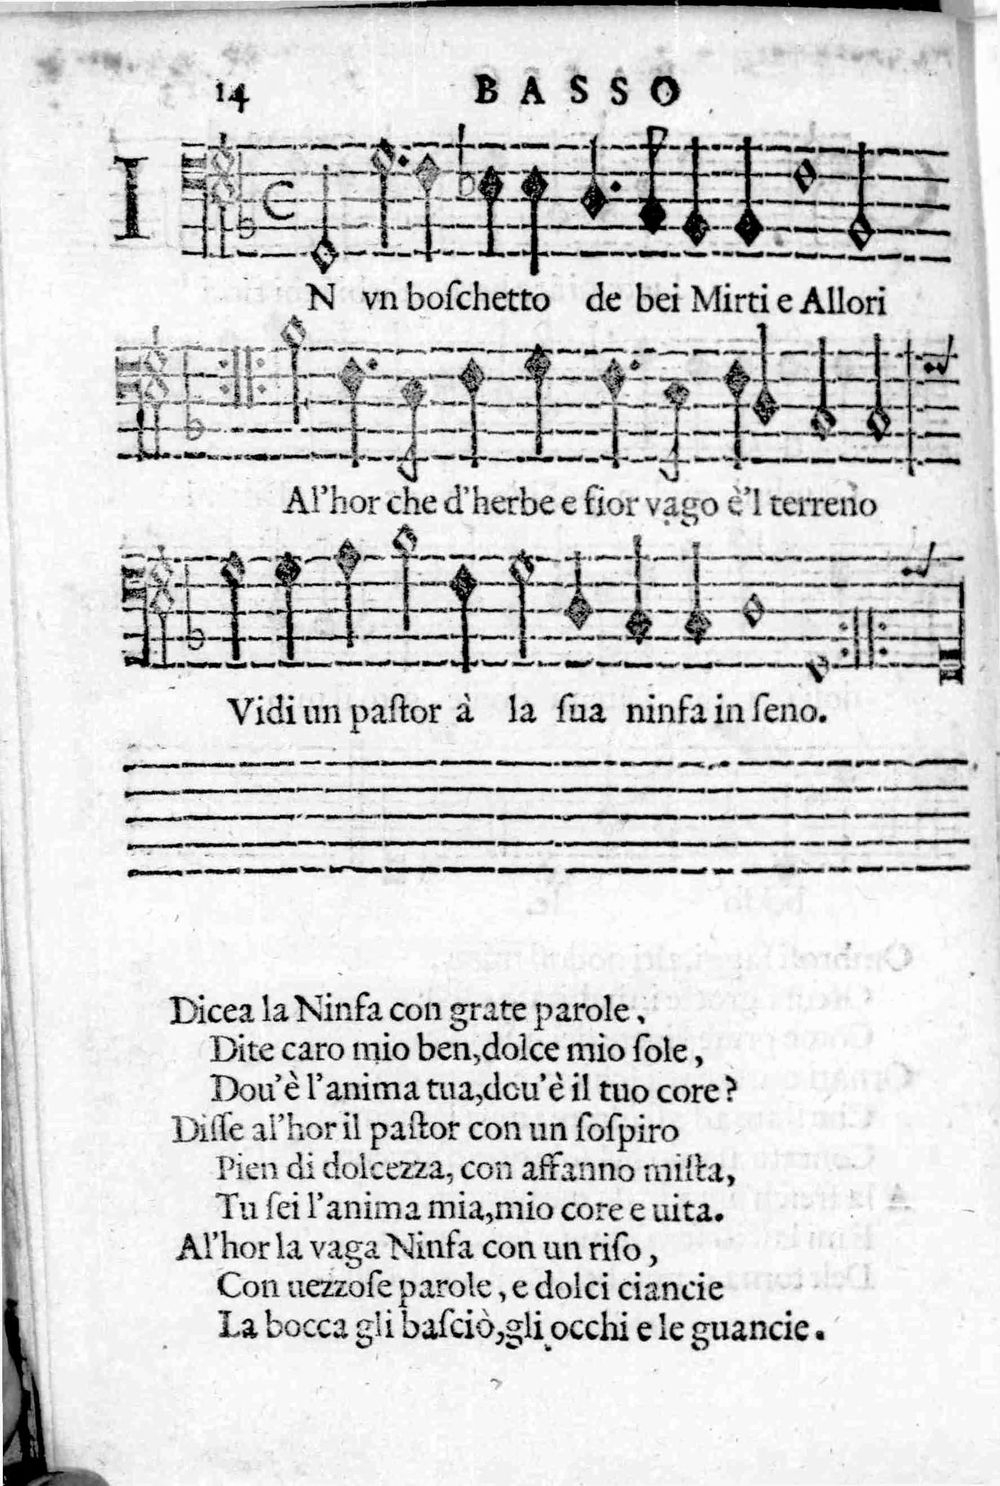 14 BASSO
IN vn boſchetto de bei Mirti e Allori
Al'hor che d'herbe e fior vago è'l terreno
Vidi un paſtor à la ſua ninfa in ſeno.
Dicea la Ninfa con grate parole,
Dite caro mio ben,dolce mio ſole,
Dou'è l'anima tua,dou'è il tuo core?
Diſſe al'hor il paſtor con un ſoſpiro
Pien di dolcezza, con affanno miſta,
Tu ſei l'anima mia,mio core e uita.
Al'hor la vaga Ninfa con un riſo,
Con uezzoſe parole, e dolci ciancie
La bocca gli baſciò,gli occhi e le guancie.